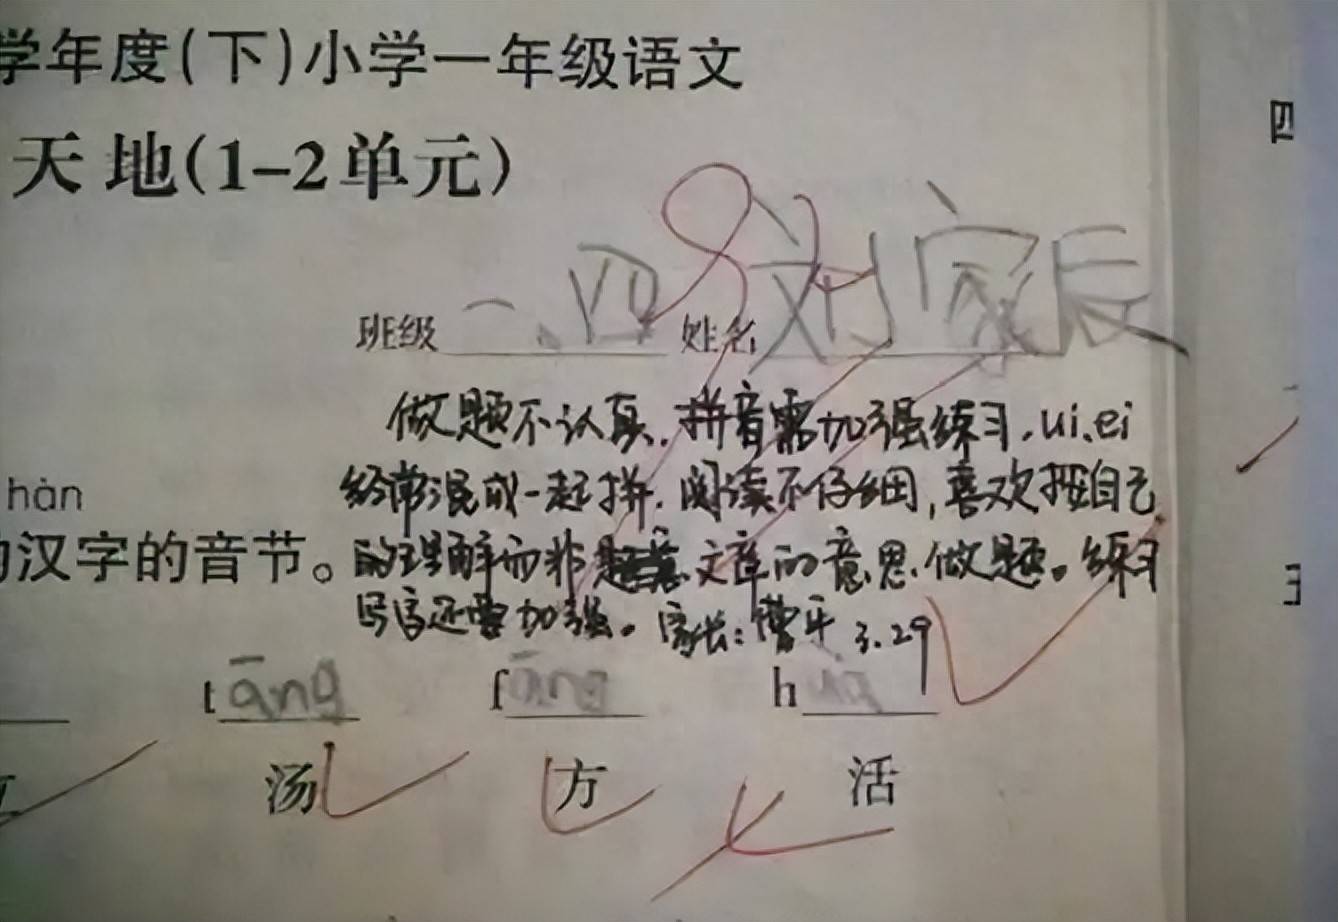 学年度(下)小学一年级语文
天地(1-2单元)
四
班级 一、四 姓名 刘家辰
做题不认真.拼音需加强练习.ui、ei
经常混成一起拼.阅读不仔细,喜欢按自己
hàn
的汉字的音节。
的理解而非 文章的意思做题。练习
写字还要加强。家长:曹平 3.29
tāng fāng h
汤 方 活